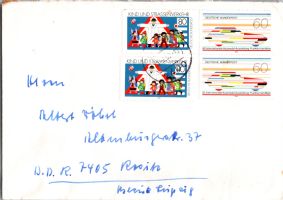 KIND UND STRASSENVERKEHR
80
KIND UND STRASSENVERKEHR
80
DEUTSCHE BUNDESPOST
60
DEUTSCHE BUNDESPOST
60
Herrn
Albert
Altenburgerstr. 37
D.D.R. 7405 Rositz
Bezirk Leipzig